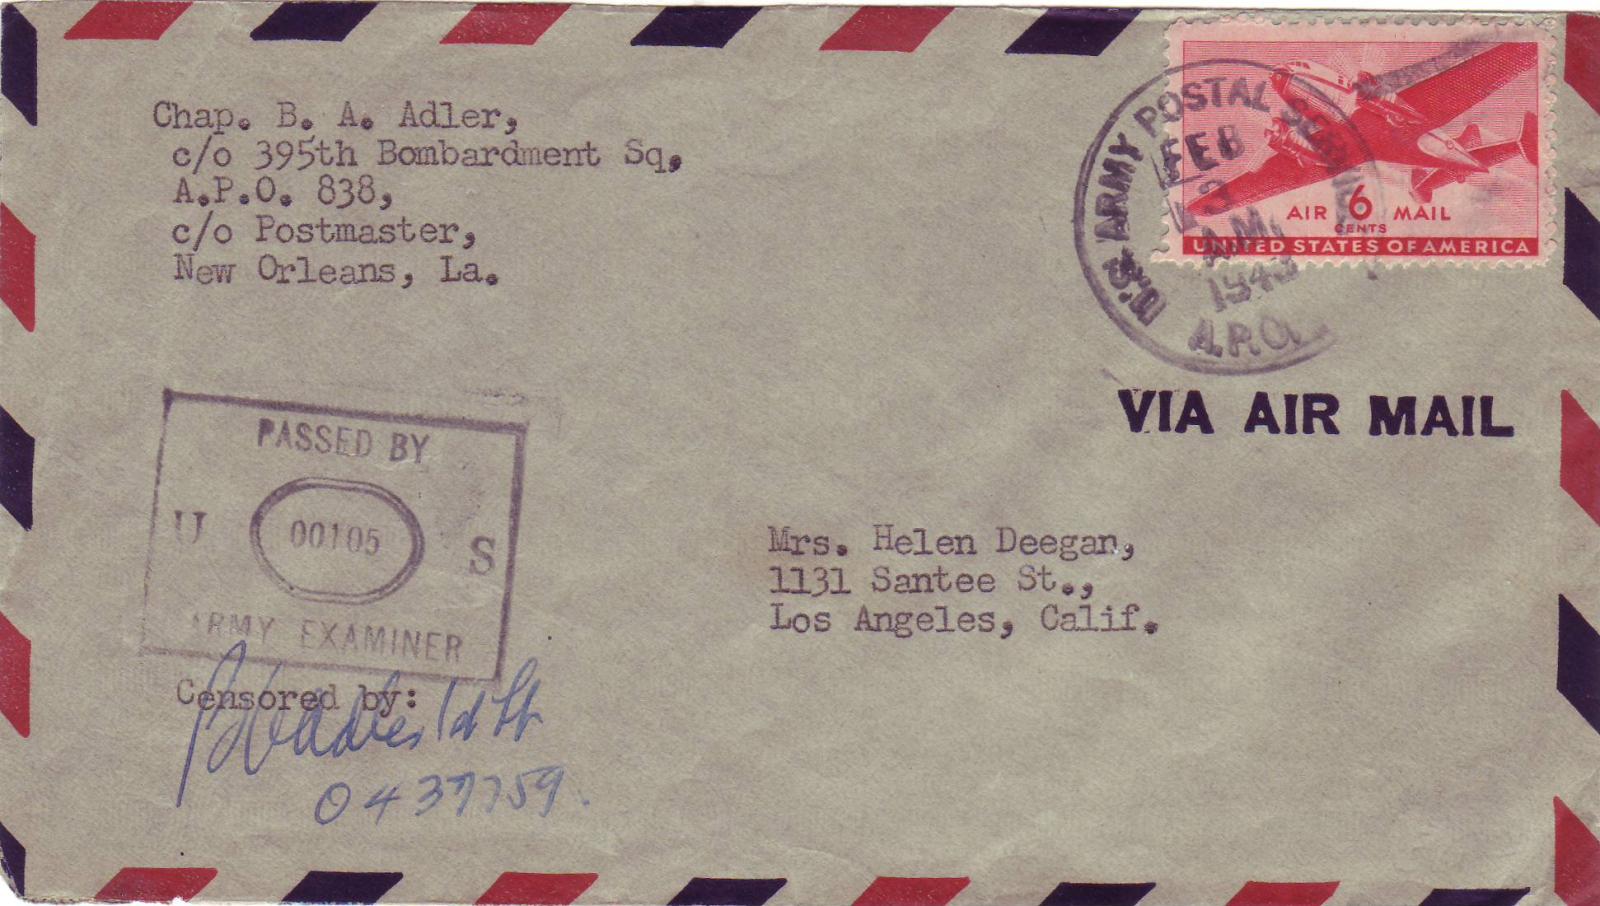 Chap. B. A. Adler,
c/o 395th Bombardment Sq,
A.P.O. 838,
c/o Postmaster,
New Orleans, La.
U.S. ARMY POSTAL SERVICE
FEB
A.M.
1943
A.P.O.
AIR 6 MAIL
CENTS
UNITED STATES OF AMERICA
VIA AIR MAIL
PASSED BY
U 00105 S
ARMY EXAMINER
Mrs. Helen Deegan,
1131 Santee St.,
Los Angeles, Calif.
Censored by:
Adler 1st Lt
0437759.